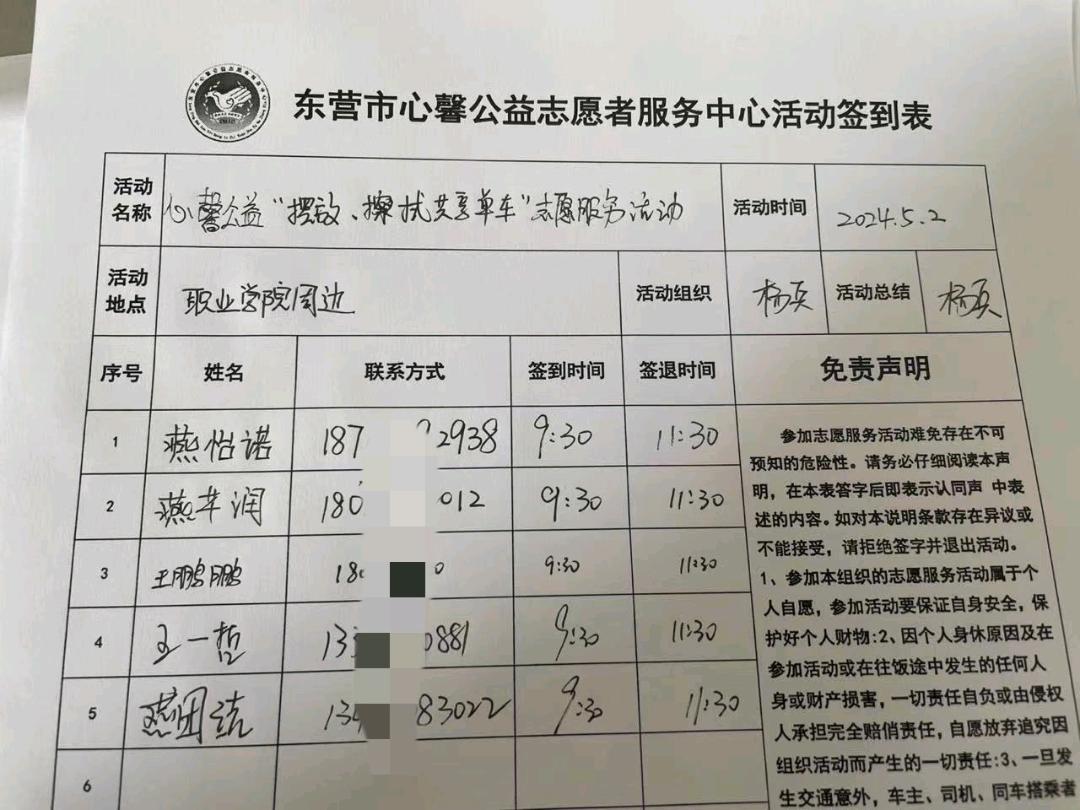 东营市心馨公益志愿者服务中心活动签到表
活动名称 心馨公益“摆放、擦拭共享单车”志愿服务活动 活动时间 2024.5.2
活动地点 职业学院周边 活动组织 杨页 活动总结 杨页
序号 姓名 联系方式 签到时间 签退时间 免责声明
1 燕怡诺 187 2938 9:30 11:30
2 燕芊润 180 012 9:30 11:30
3 王鹏鹏 180 0 9:30 11:30
4 王一哲 133 0881 9:30 11:30
5 燕团结 134 83022 9:30 11:30
6
参加志愿服务活动难免存在不可
预知的危险性。请务必仔细阅读本声
明，在本表签字后即表示认同声 中表
述的内容。如对本说明条款存在异议或
不能接受，请拒绝签字并退出活动。
1、参加本组织的志愿服务活动属于个
人自愿，参加活动要保证自身安全，保
护好个人财物:2、因个人身休原因及在
参加活动或在往饭途中发生的任何人
身或财产损害，一切责任自负或由侵权
人承担完全赔俏责任，自愿放弃追究因
组织活动而产生的一切责任:3、一旦发
生交通意外，车主、司机、同车搭乘者